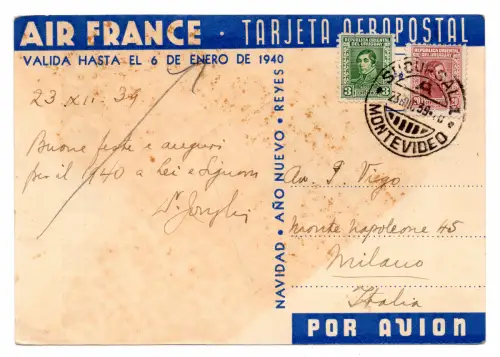 AIR FRANCE · TARJETA AEROPOSTAL
VALIDA HASTA EL 6 DE ENERO DE 1940
REPUBLICA ORIENTAL
DEL URUGUAY
3 3
REPUBLICA ORIENTAL
DEL URUGUAY
SUCURSAL
MONTEVIDEO
23 XII 39
Buone feste e auguri
per il 940 a Lei e Signora
NAVIDAD · AÑO NUEVO · REYES
Av. P. Viego
Monte Napoleone 45
Milano
Italia
POR AVION